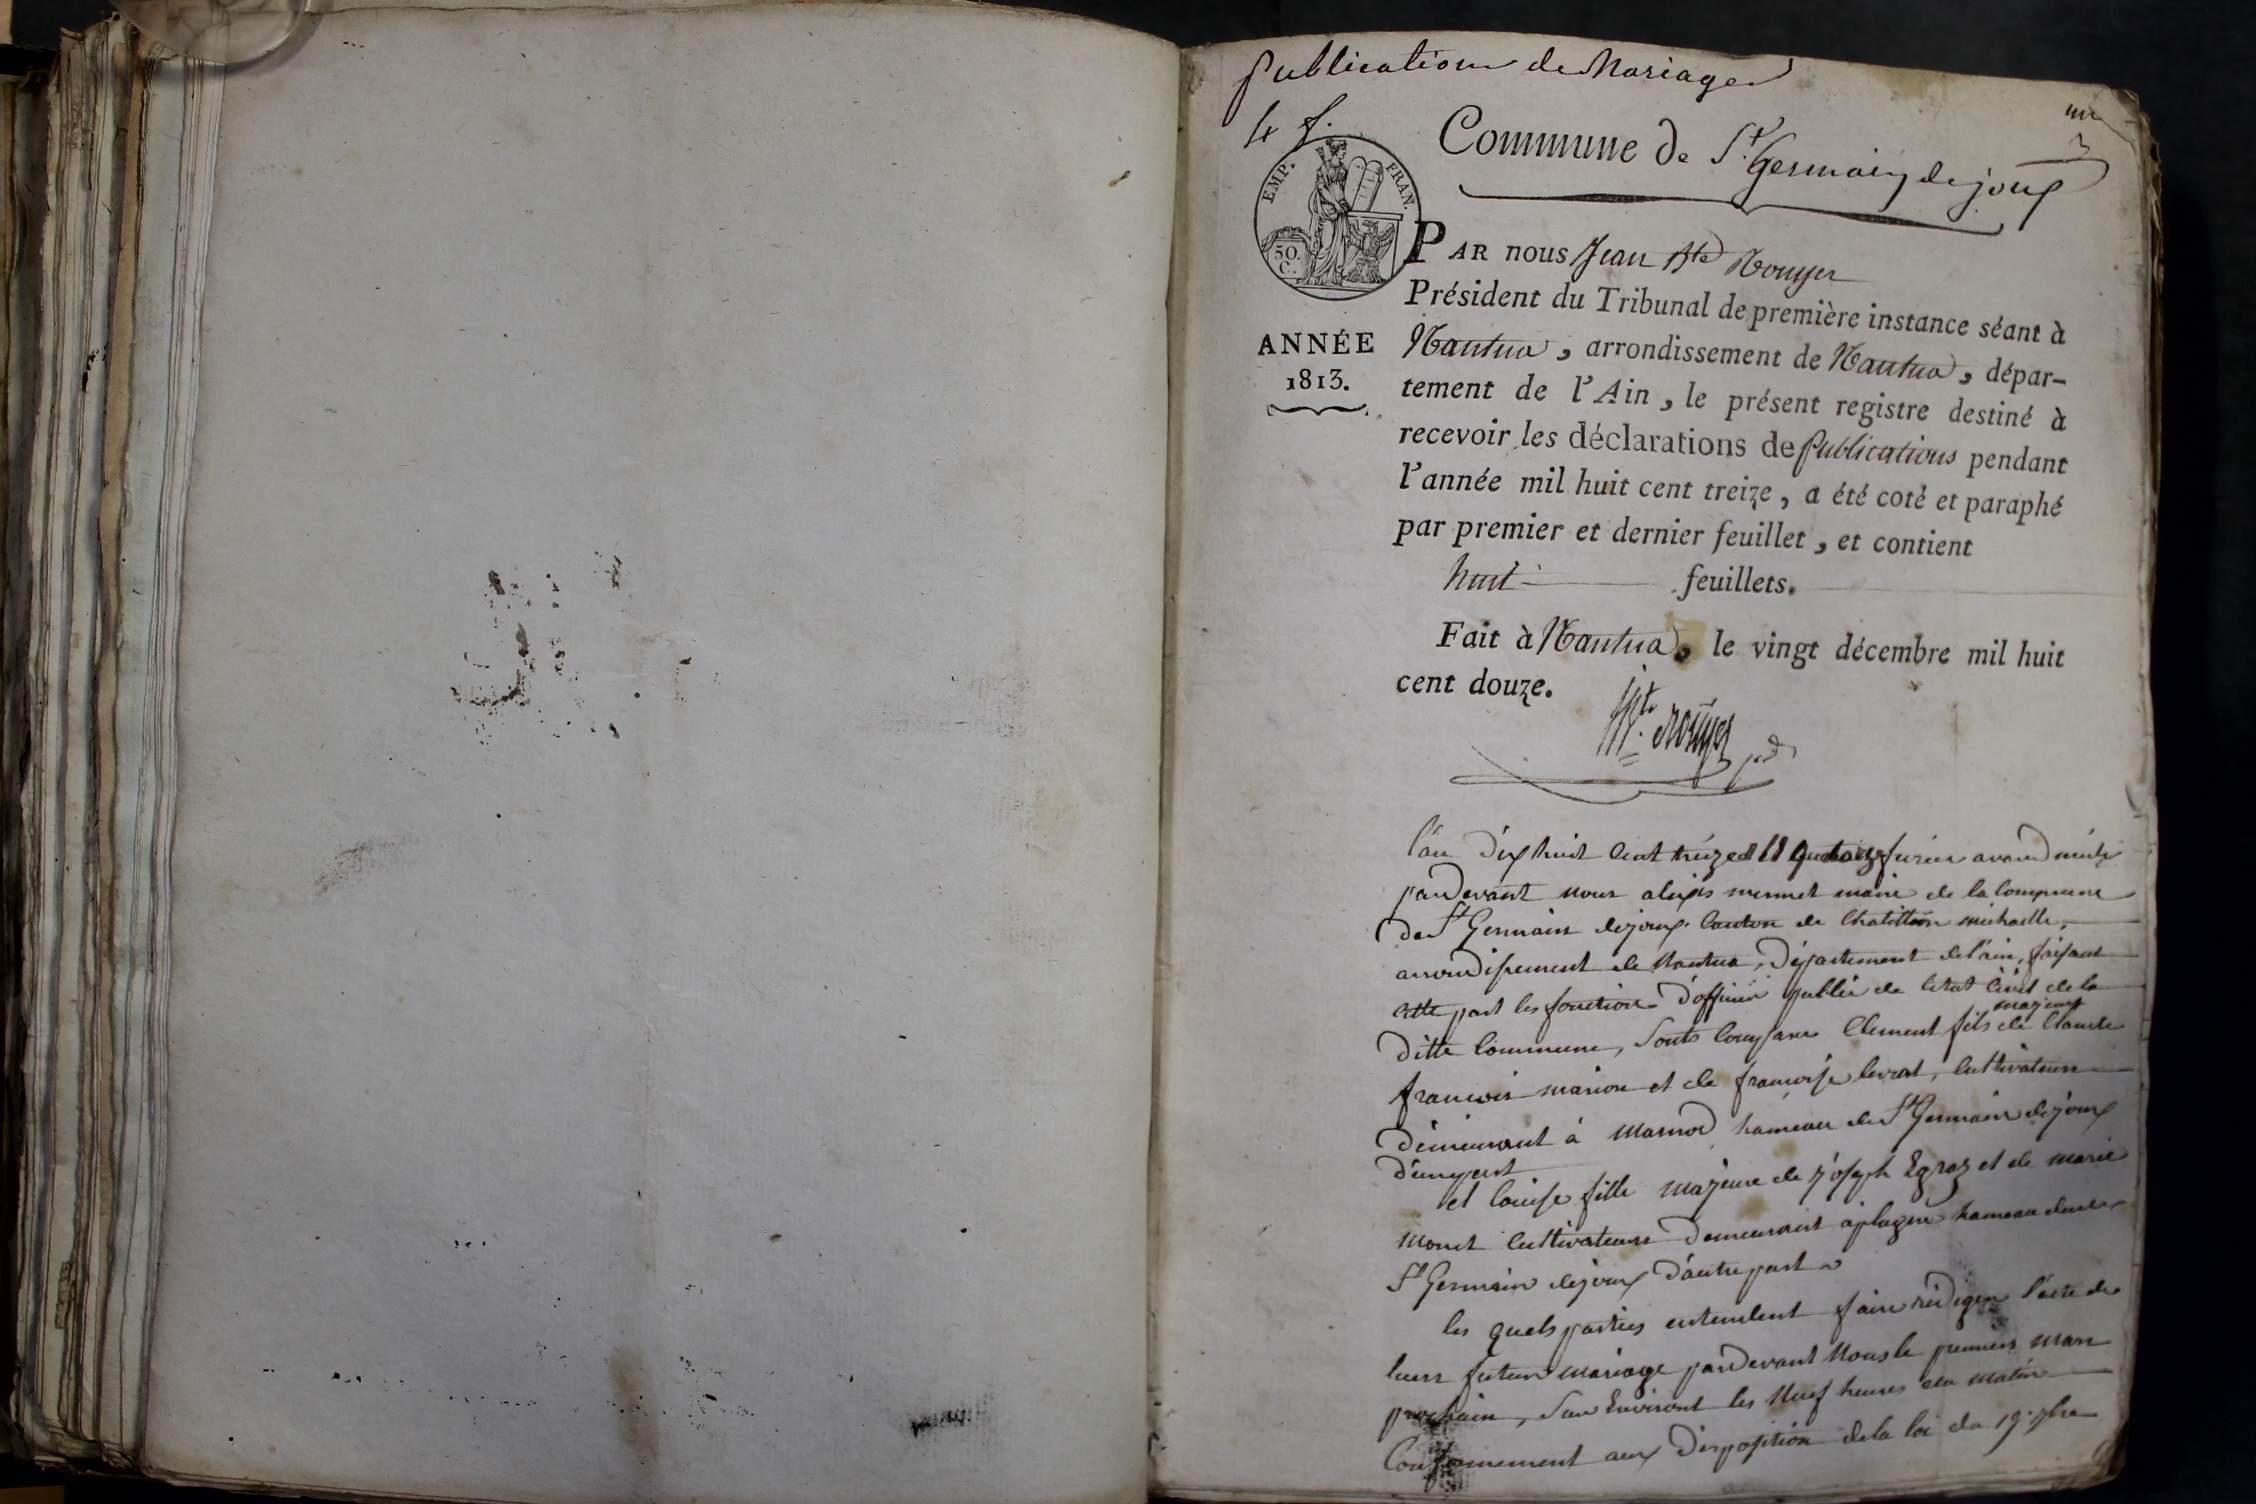 Publications de Mariages
4 f.
un
Commune de St Germain de joux
EMP. FRAN.
50. C.
ANNÉE
1813.
PAR nous Jean Bte Rouyer
Président du Tribunal de première instance séant à
Nantua, arrondissement de Nantua, dépar-
tement de l'Ain, le présent registre destiné à
recevoir les déclarations de Publications pendant
l'année mil huit cent treize, a été coté et paraphé
par premier et dernier feuillet, et contient
huit feuillets.
Fait à Nantua, le vingt décembre mil huit
cent douze.
Bte Rouyer pdt
l'an dix huit cent treize et le quatorze fevrier avand midi
pardevant nous alexis mermet maire de la Commune
de St Germain dejoux Canton de Chatillion michaille,
arrondissement de Nantua, Département de l'ain, faisant
cette part les fonction d'officier public de l'etat Civil de la
ditte Commune, sont Comparu Clement fils majeur de Claude
francois marion et de francoise levrat, Cultivateurs
demeurant à marnod hameau de St Germain dejoux
d'unepart
et Louise fille majeure de joseph Egraz et de marie
monet Cultivateurs demeurant à plagne hameau dudit
St Germain dejoux d'autre part
les quels parties entendent faire rédiger l'acte de
leurs futur mariage pardevant Nous le premier mars
prochain, sur Environt les Neuf heures du matin
Conformement aux disposition de la loi du 19 7bre